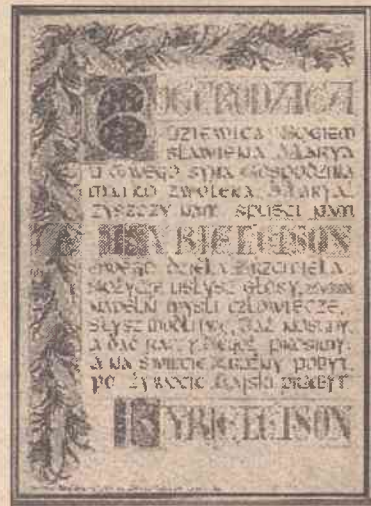 BOGURODZICA
DZIEWICA BOGIEM
SŁAWIENA MARYA
U TWEGO SYNA GOSPODZINA
MATKO ZWOLENA MARYA
ZYSZCZY NAM SPUŚCI NAM
KYRIELEISON
TWEGO DZIEŁA KRZCICIELA
BOŻYCZE USŁYSZ GŁOSY,
NAPEŁŃ MYŚLI CZŁOWIECZE,
SŁYSZ MODLITWĘ, JĄŻ NOSIMY,
A DAĆ RACZY, JEGOŻ PROSIMY,
A NA ŚWIECIE ZBOŻNY POBYT,
PO ŻYWOCIE RAJSKI PRZEBYT
KYRIELEISON